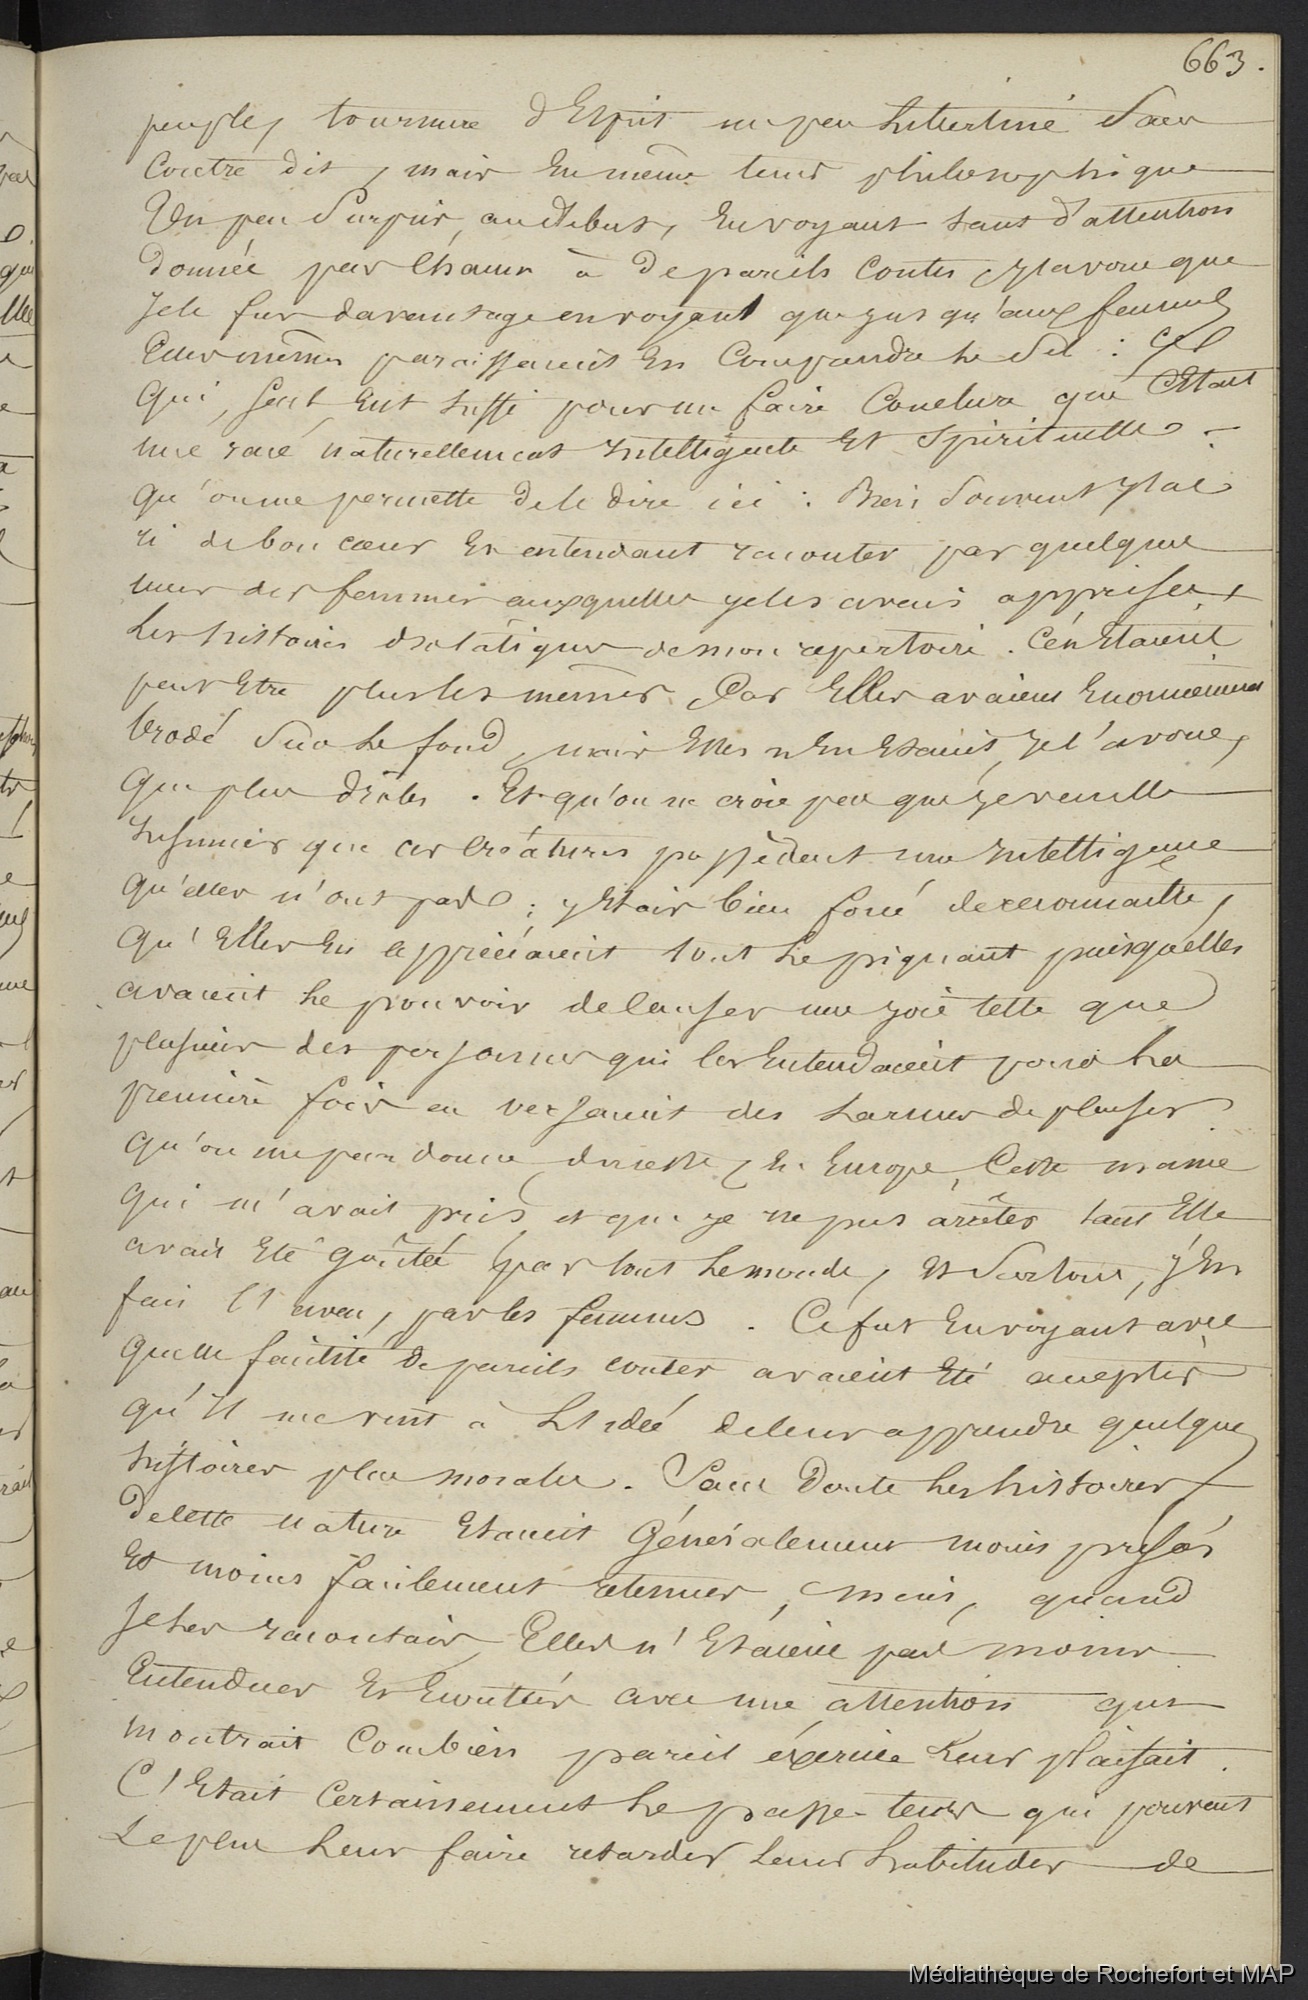 663.
peuple, tournure d'Esprit un peu Libertine Sans
Contre dit, mais En même tems philosophique
Un peu Surpris, au debut, En voyant tant d'attention
donnée par Chacun à de pareils Contes, J'avoue que
Je le fus davantage en voyant que jusqu'aux femmes
Elles mêmes paraissaient En Comprendre Le Sel :
Qui, seul, eut suffi pour me faire Conclure que C'était
une race naturellement Intelligente Et Spirituelle.
Qu'on me permette de le dire ici : Bien Souvent J'ai
ri de bon cœur En entendant raconter par quelques
unes des femmes auxquelles je les avais apprises,
Les histoires de mon repertoire. Ce n'Etaient
peut Etre plus les mêmes Car Elles avaient Enormement
brodé Sur Le fond, mais Elles n'En Etaient, Je l'avoue,
Que plus drôles. Et qu'on ne croie pas que je veuille
Insinuer que ces Créatures possèdent une Intelligence
Qu'elles n'ont pas ; J'Etais bien forcé de reconnaitre,
Qu'Elles En appréciaient tout Le piquant puisqu'elles
avaient Le pouvoir de Causer une joie telle que
plusieurs des personnes qui les Entendaient pour La
première fois en versaient des Larmes de plaisir
Qu'on me pardonne, En Europe, Cette manie
Qui m'avait pris et que je ne pus arrêter tant Elle
avait Eté goûtée par tout Le monde, Et Surtout, j'En
fais l'aveu, par les femmes. Ce fut En voyant avec
Quelle facilité de pareils contes avaient Eté acceptés
qu'il me vint à L'Idée de leur apprendre quelques
histoires plus morales. Sans Doute Les histoires
de Cette nature Etaient Généralement moins prisées
Et moins facilement retenues, mais, quand
Je Les racontais, Elles n'Etaient pas moins
Entendues Et Ecoutées avec une attention qui
montrait Combien pareil éxercice Leur plaisait.
C'Etait Certainement Le passe-tems qui pouvait
Le plus Leur faire retarder Leurs habitudes de
Médiathèque de Rochefort et MAP